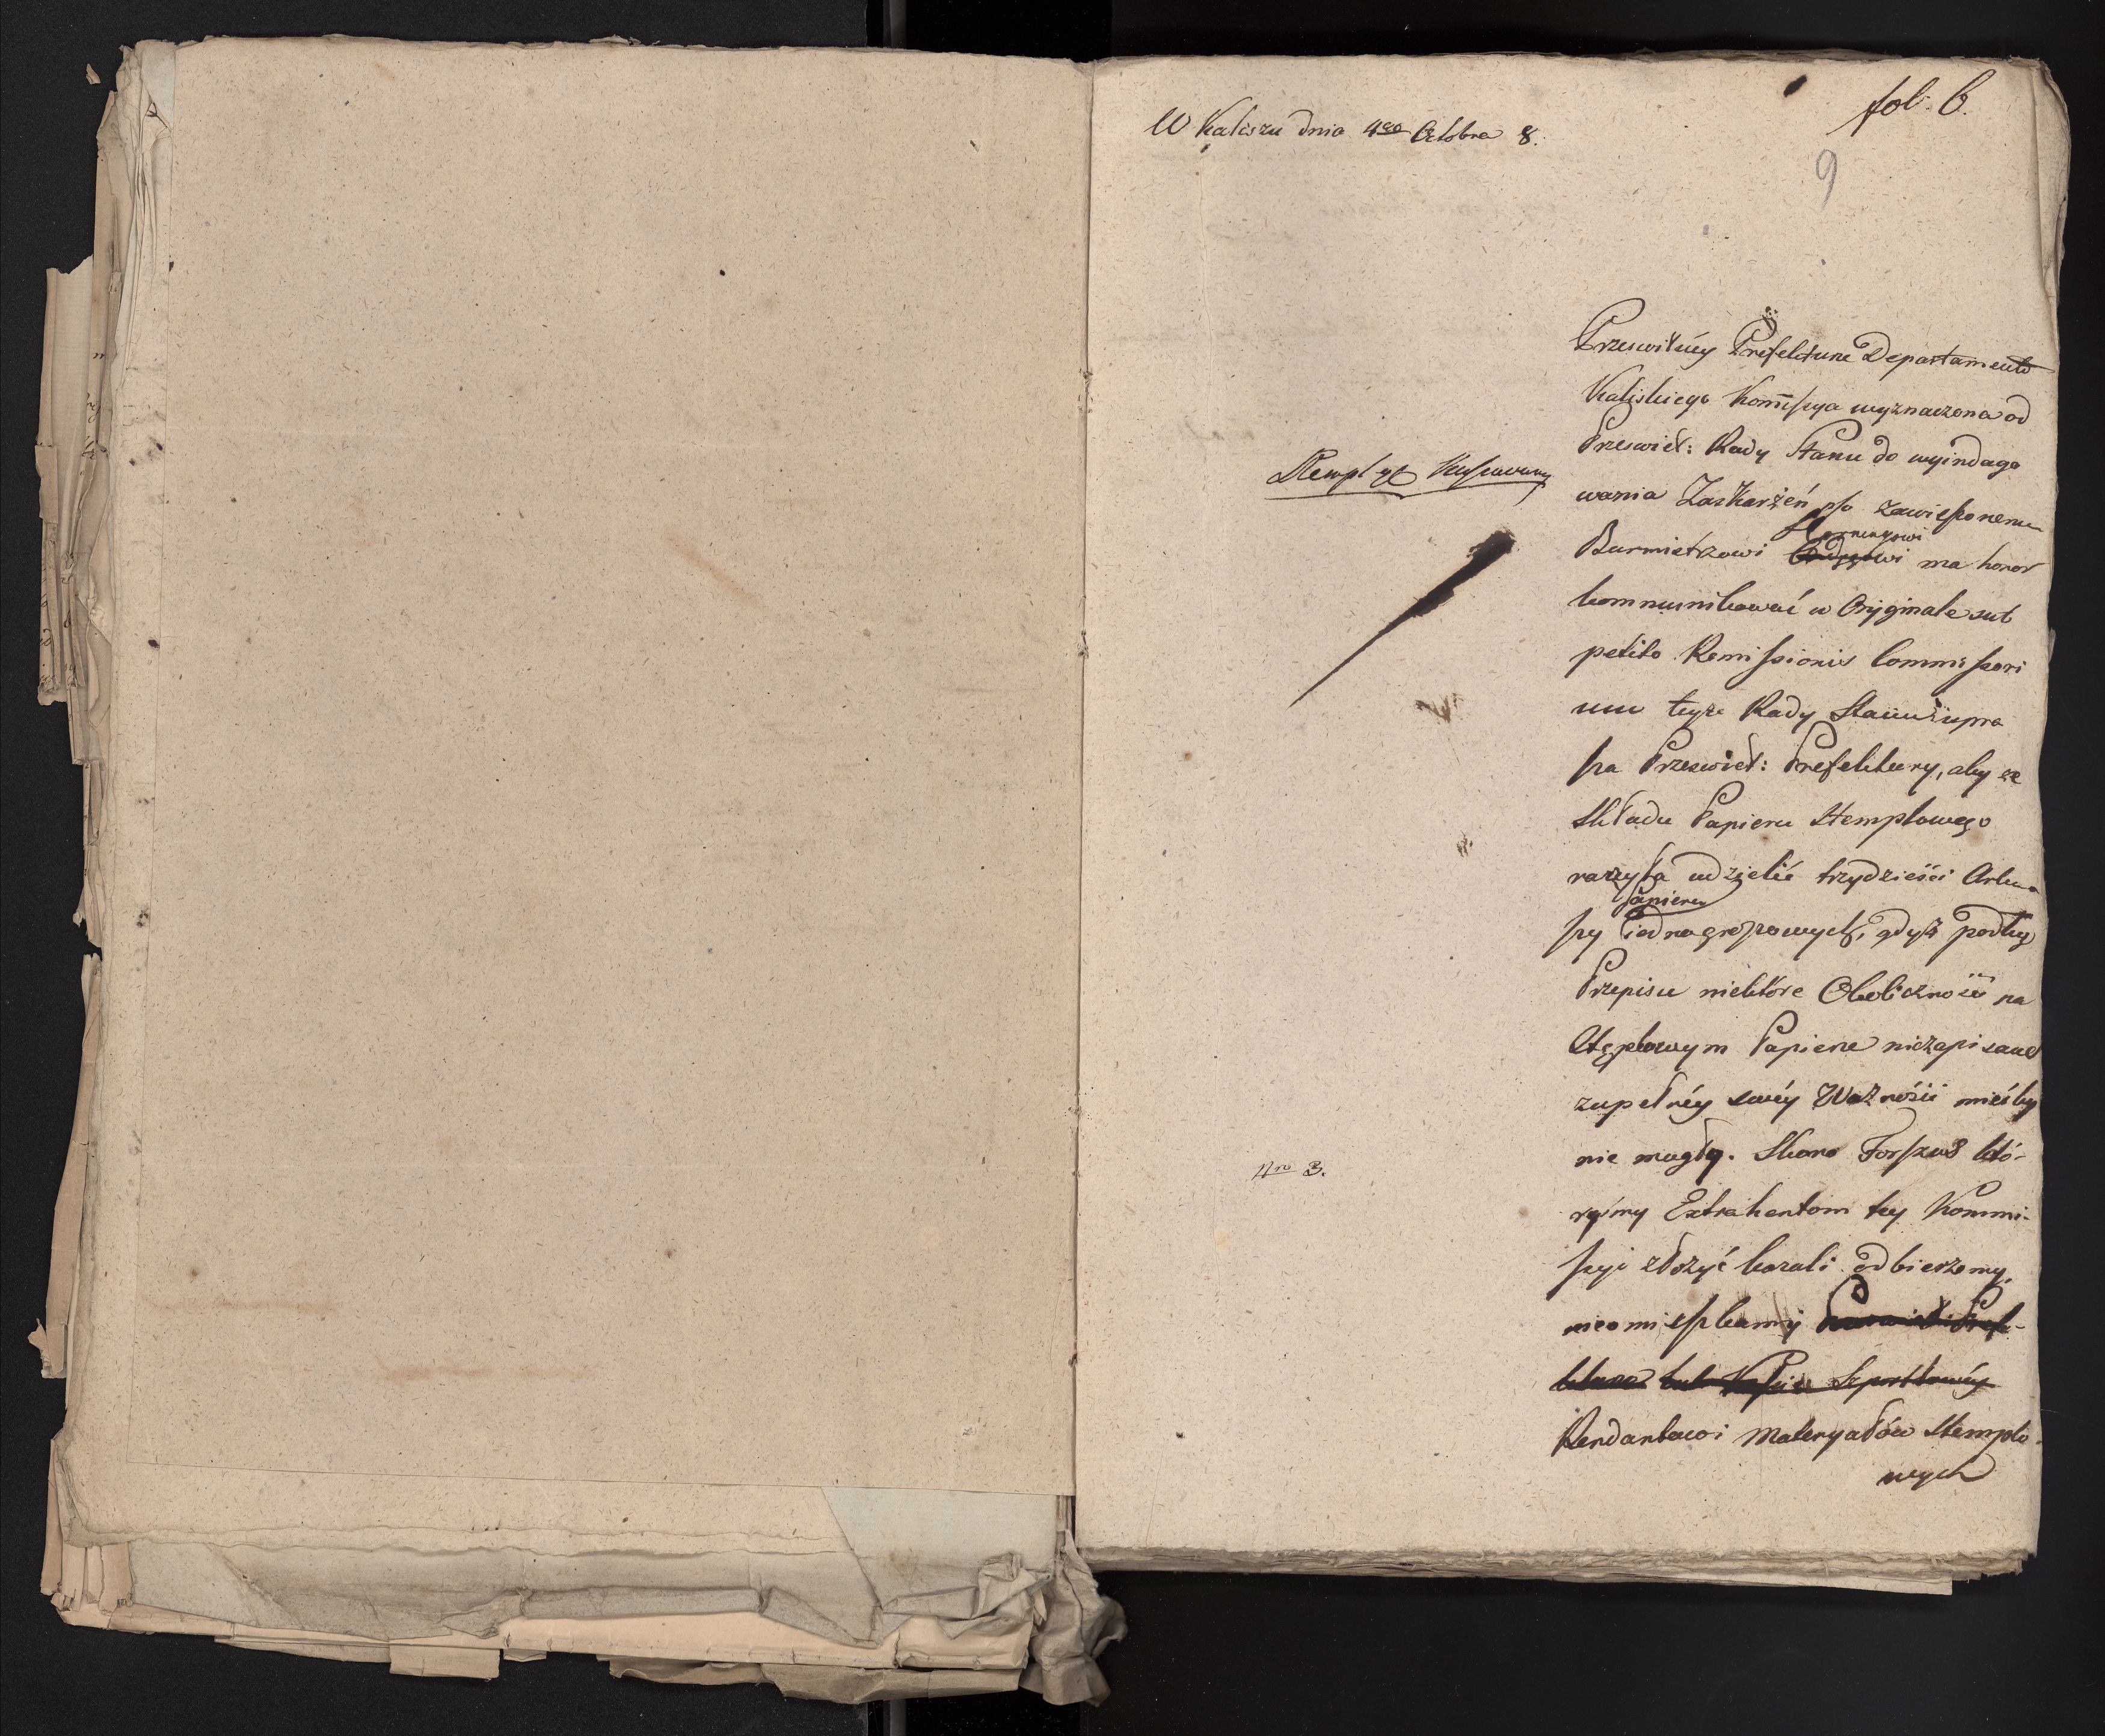 fol. 6.
W Kaliszu dnia 4go Octobra 8.
9
Prześwitnéy Prefekturze Departamentu
Kaliskiego Kom̄issya wyznaczona od
Przeświet: Rady Stanu do wyindago
wania Zaskarżeń p/o zawieszonemu
Burmistrzowi ma honor
kommunikować w Oryginale sub
petito Remissionis Commissori
um teyże Rady Stanu i upra
sza Przeświet: Prefektury, aby ze
Składu Papieru Stemplowego
raczyła udzielić trzydzieści Arku
Papieru
szy iednogroszowych, gdyż podług
Przepisu niektóre Okoliczności na
Stęplowym Papierze niezapisane
zupełnéy swéy Ważności miećby
nie mogły. Skoro Forszus któ-
ryśmy Extrahentom tey Kommi-
ssyi złożyć kazali odbierzemy,
nieomieszkamy
Rendantowi Materyałów Stemplo-
wych
Nro 3.